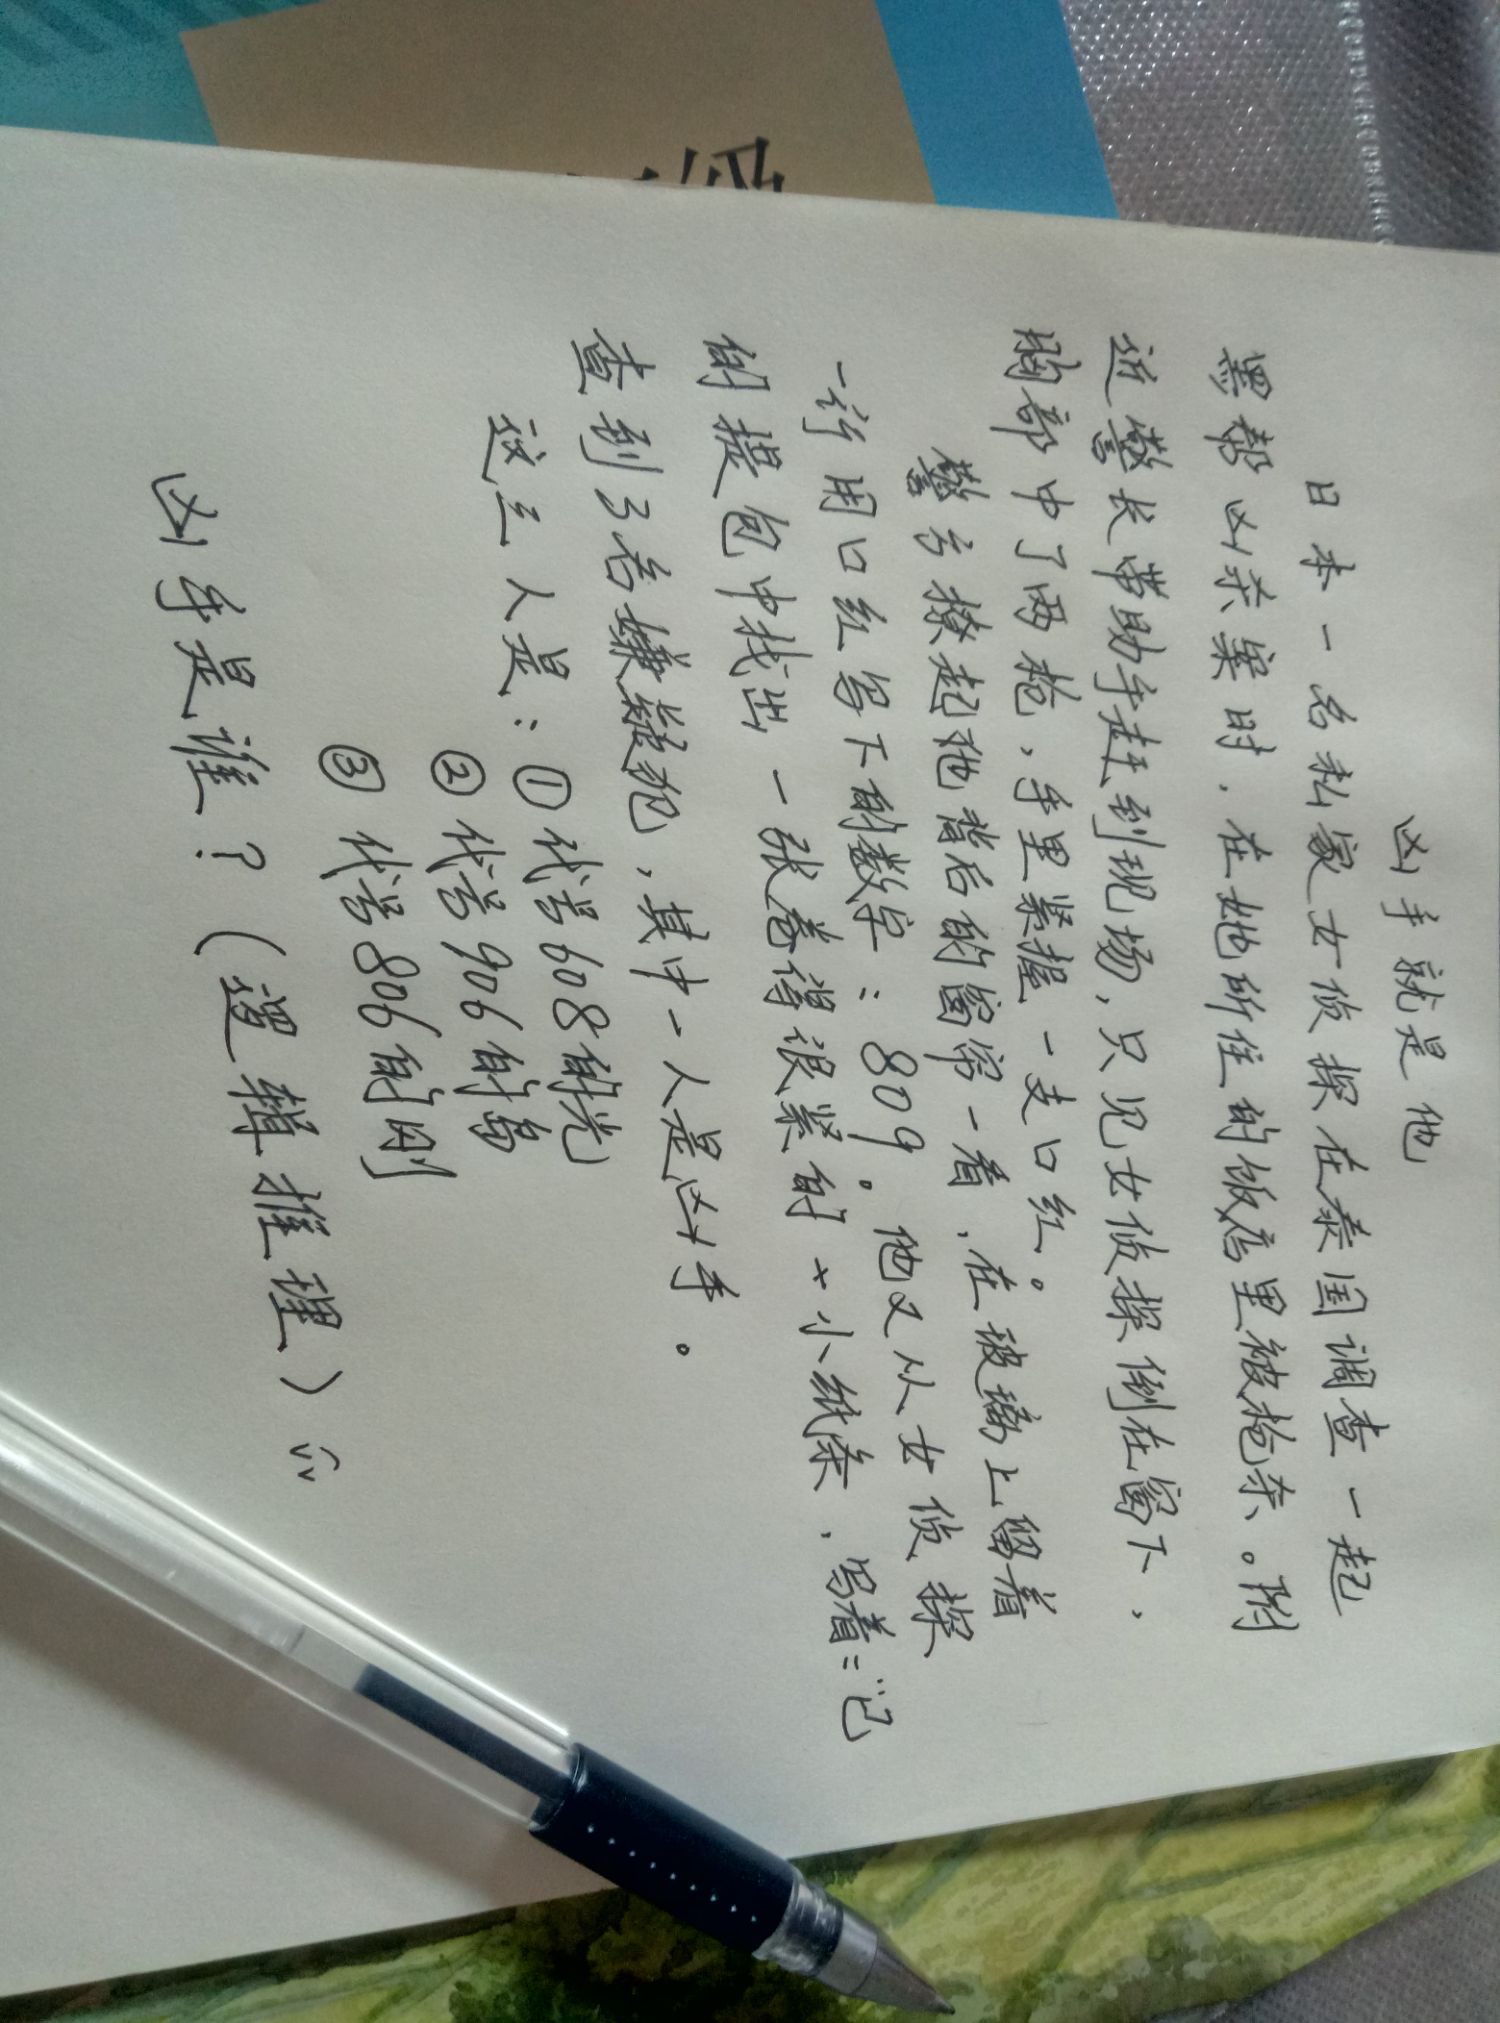 凶手就是他
日本一名私家女侦探在泰国调查一起
黑帮凶杀案时，在她所住的饭店里被枪杀。附
近警长带助手赶到现场，只见女侦探倒在窗下，
胸部中了两枪，手里紧握一支口红。
警官撩起她背后的窗帘一看，在玻璃上留着
一行用口红写下的数字：809。他又从女侦探
的提包中找出一张卷得很紧的小纸条，写着："已
查到3名嫌疑犯，其中一人是凶手。
这三人是：①代号608的光
②代号906的岛
③代号806的刚
凶手是谁？（逻辑推理）